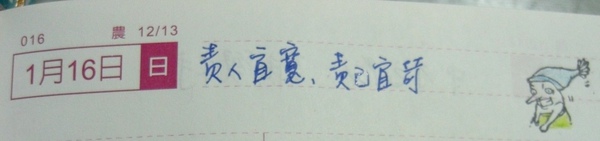 016 農 12/13
1月16日 日 責人宜寬、責己宜苛